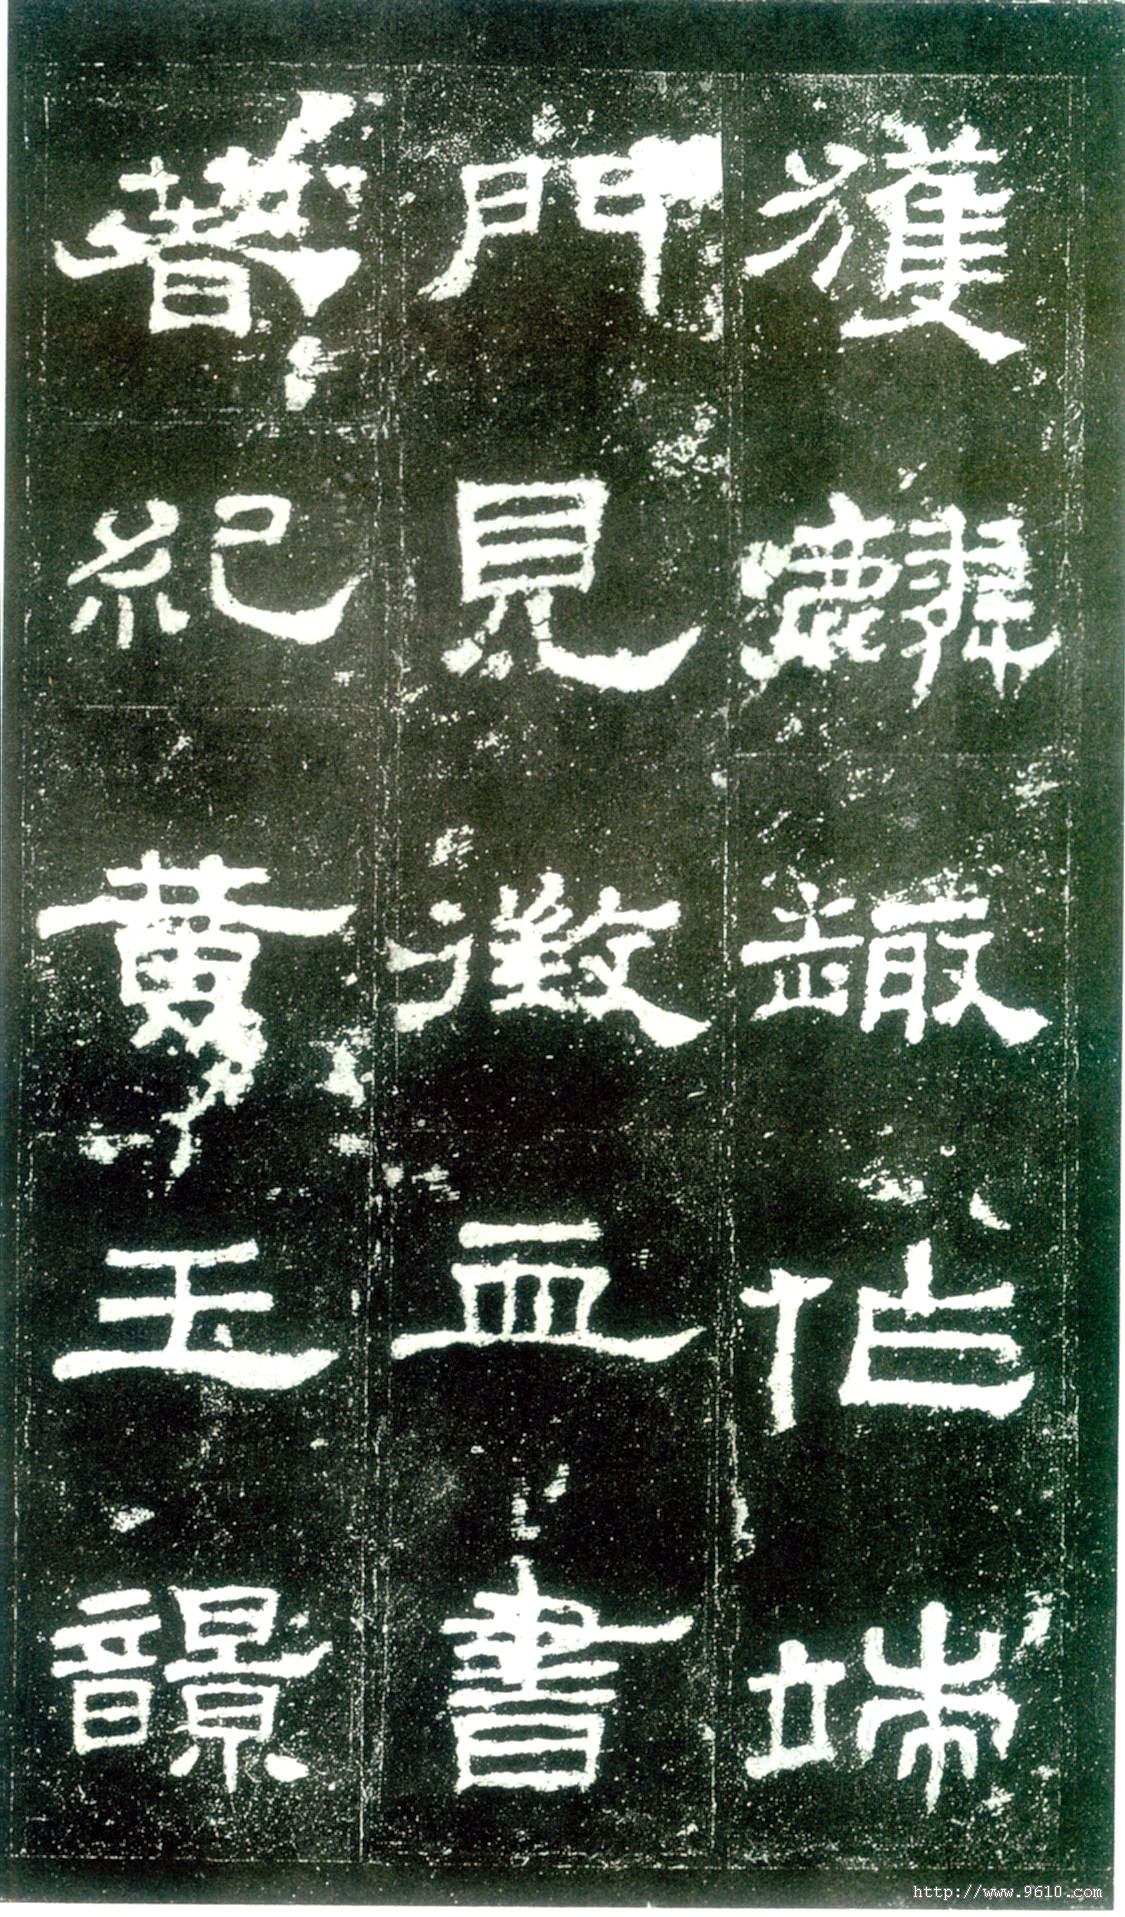 獲麟趣作端
門見徵血書
著紀黃玉韻
http://www.9610.com